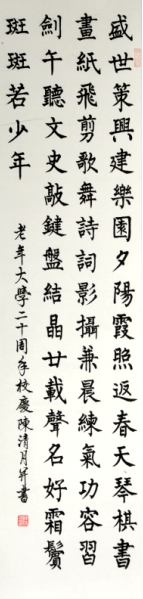 盛世策興建樂園夕陽霞照返春天琴棋書
畫紙飛剪歌舞詩詞影攝兼晨練氣功容習
劍午聽文史敲鍵盤結晶廿載聲名好霜鬢
斑斑若少年
老年大學二十周年校慶陳清月并書